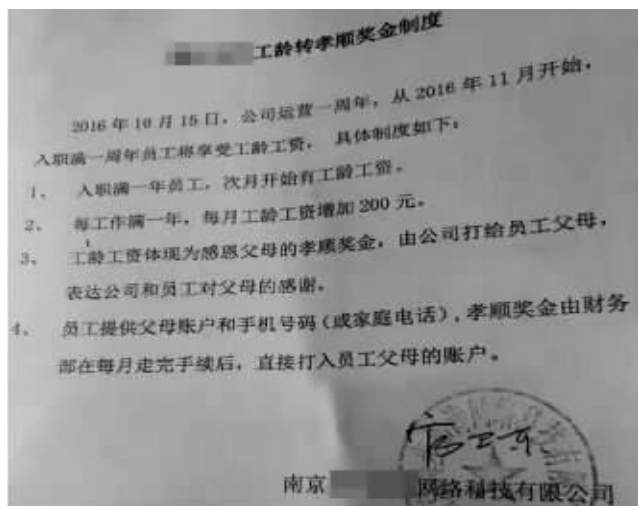 工龄转孝顺奖金制度
2016年10月15日，公司运营一周年，从2016年11月开始，
入职满一周年员工将享受工龄工资， 具体制度如下：
1、 入职满一年员工，次月开始有工龄工资。
2、 每工作满一年，每月工龄工资增加200元。
3、 工龄工资体现为感恩父母的孝顺奖金，由公司打给员工父母，
表达公司和员工对父母的感谢。
4、 员工提供父母账户和手机号码（或家庭电话），孝顺奖金由财务
部在每月走完手续后，直接打入员工父母的账户。
南京 网络科技有限公司